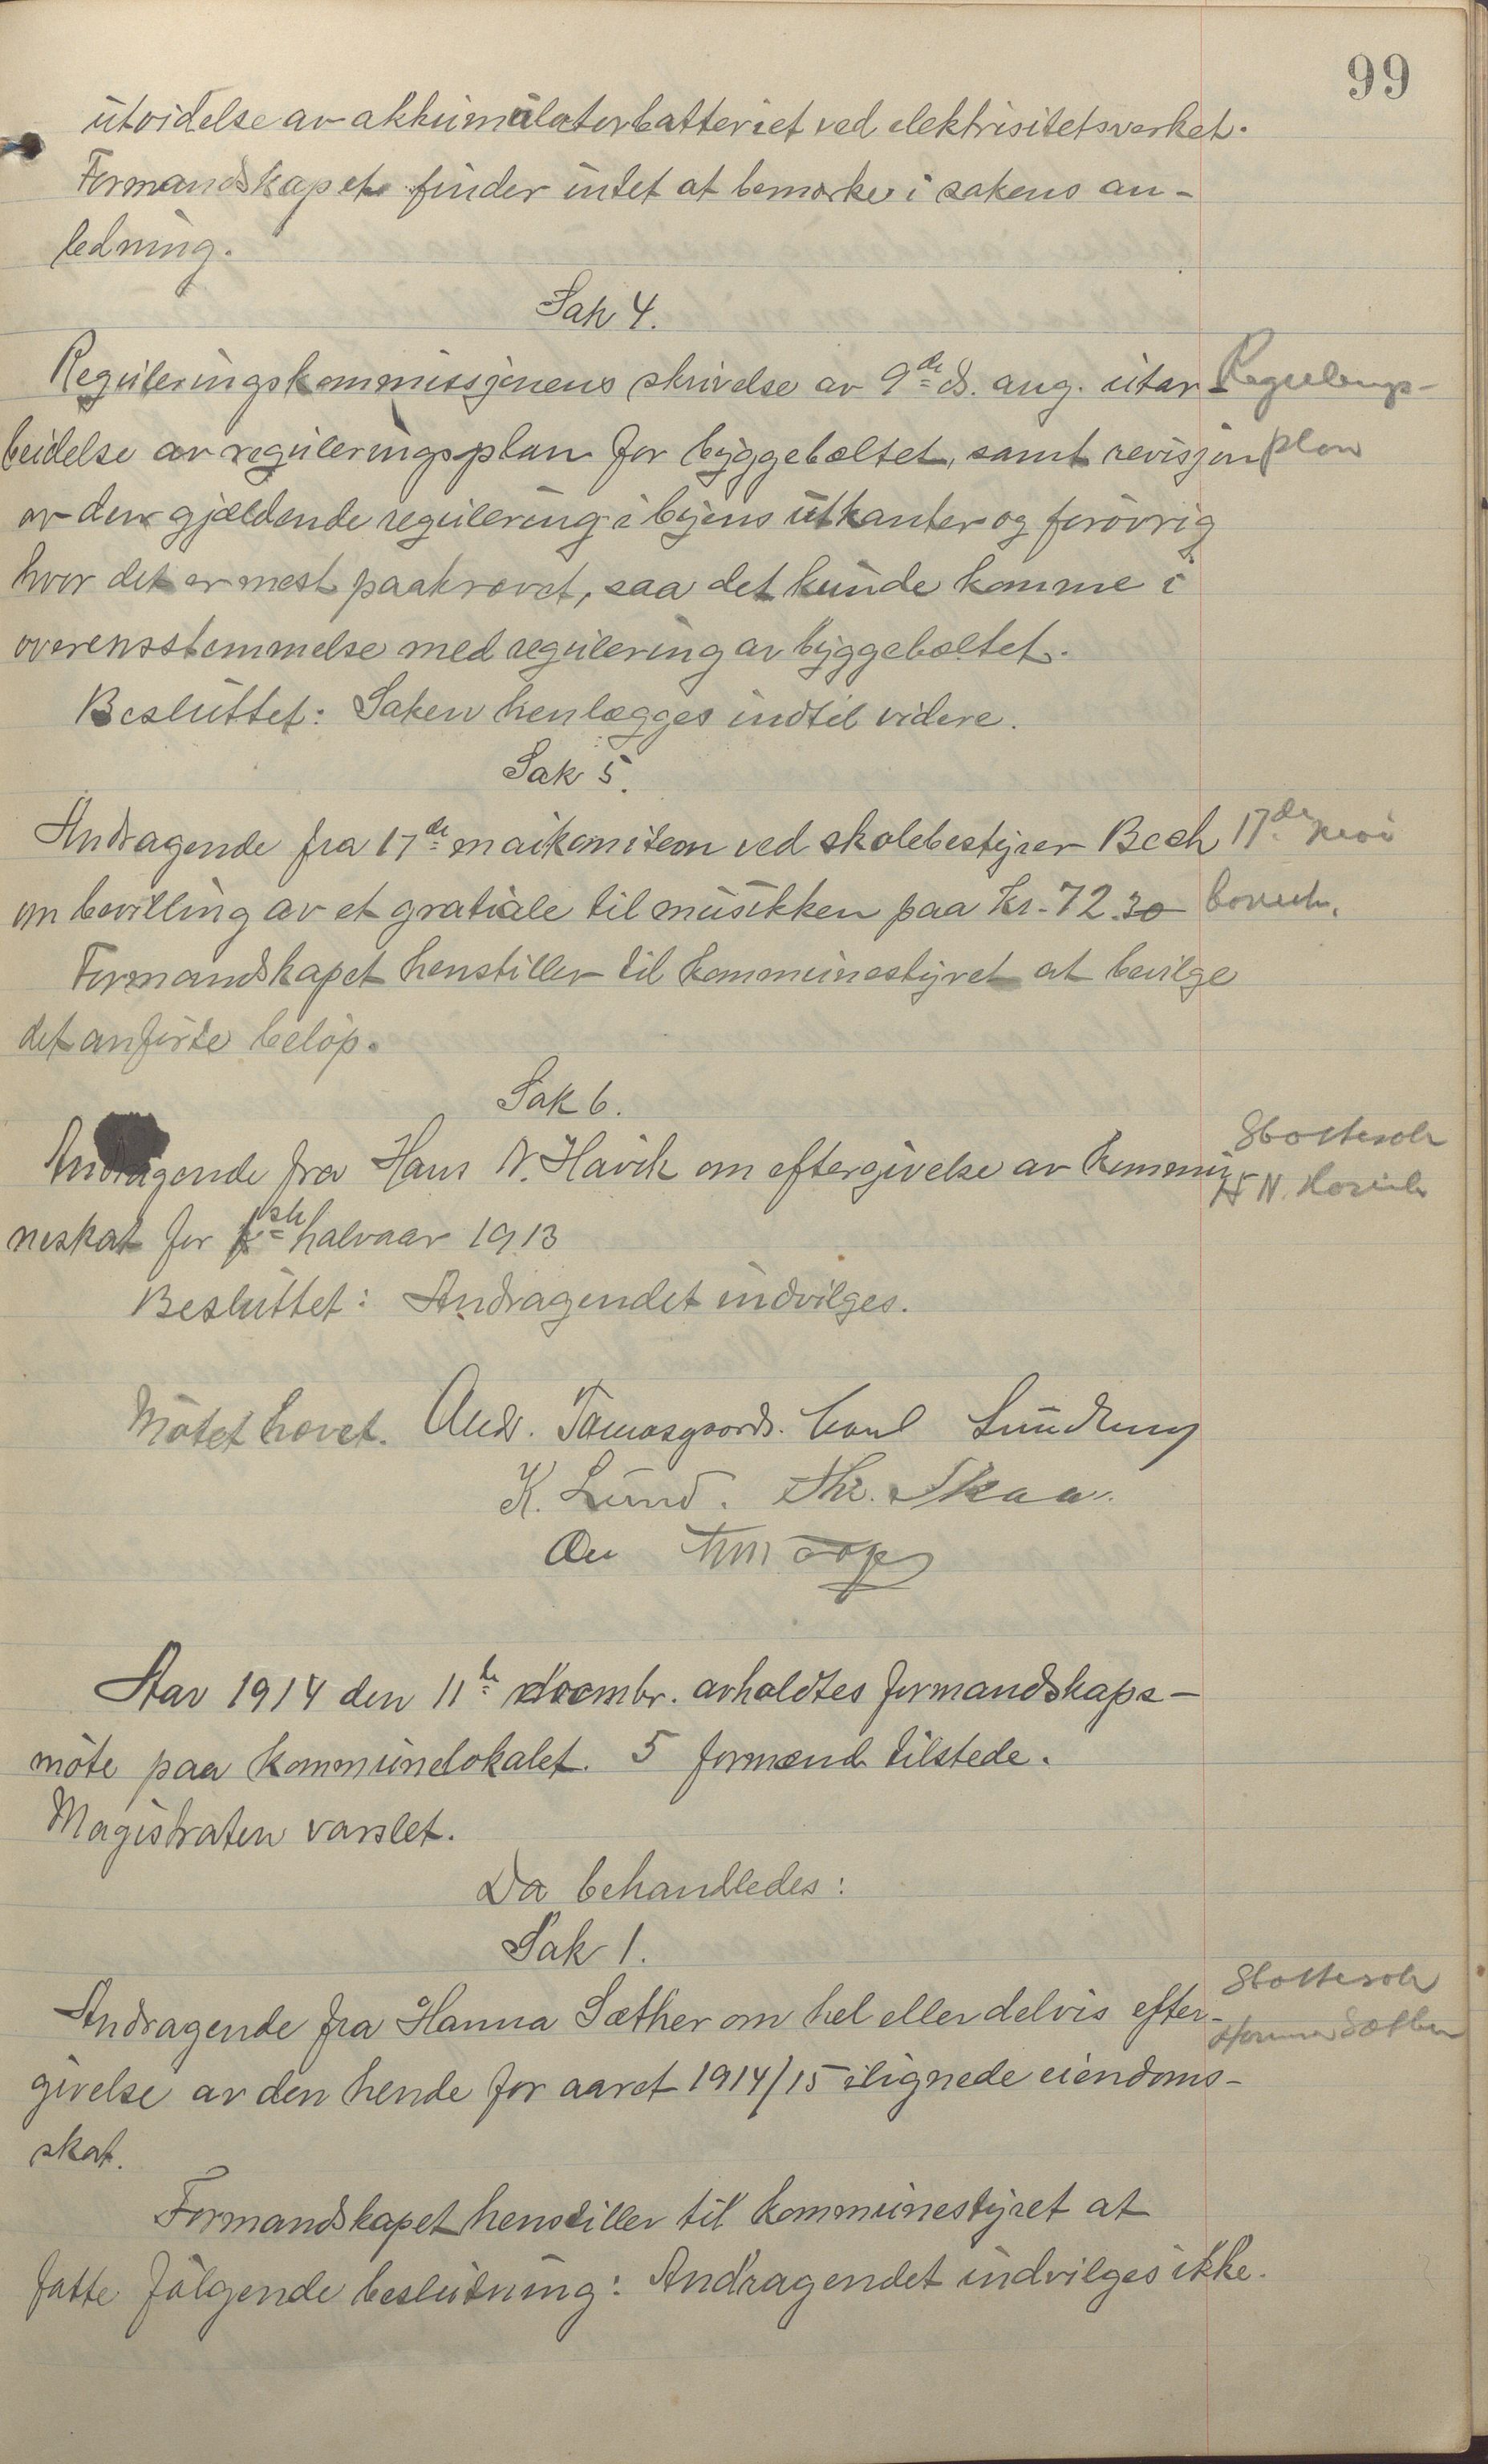 99
utvidelse av akkumulatorbatteriet ved elektrisitetsverket.
Formandskapet finder intet at bemærke i sakens an-
ledning.
Sak 4.
Reguleringskommissjonens skrivelse av 9de ds. ang. utar-
Regulerings-
beidelse av reguleringsplan for byggebæltet, samt revisjon
plan
av den gjældende regulering i byens utkanter og forøvrig
hvor det er mest paakrævet, saa det kunde komme i
overensstemmelse med regulering av byggebæltet.
Besluttet: Saken henlægges indtil videre.
Sak 5.
Andragende fra 17de maikomiteen ved skolebestyrer Bech
17de mai
om bevilling av et gratiale til musikken paa Kr. 72.30
Formandskapet henstiller til kommunestyret at bevilge
det anførte beløp.
Sak 6.
Andragende fra Hans N. Havik om eftergivelse av kommu-
Skattesak
H N. Havik
neskat for 1ste halvaar 1913
Besluttet: Andragendet indvilges.
Møtet hævet. Andr. Tomasgaard. Carl Sundling
K. Lund. Chr. Skaar.
Aar 1914 den 11te novmbr. avholdtes formandskaps-
møte paa kommunelokalet. 5 formænd tilstede.
Magistraten varslet.
Da behandledes:
Sak 1.
Andragende fra Hanna Sæther om hel eller delvis efter-
Skattesak
Hanna Sæther
givelse av den hende for aaret 1914/15 ilignede eiendoms-
skat.
Formandskapet henstiller til kommunestyret at
fatte følgende beslutning: Andragendet indvilges ikke.